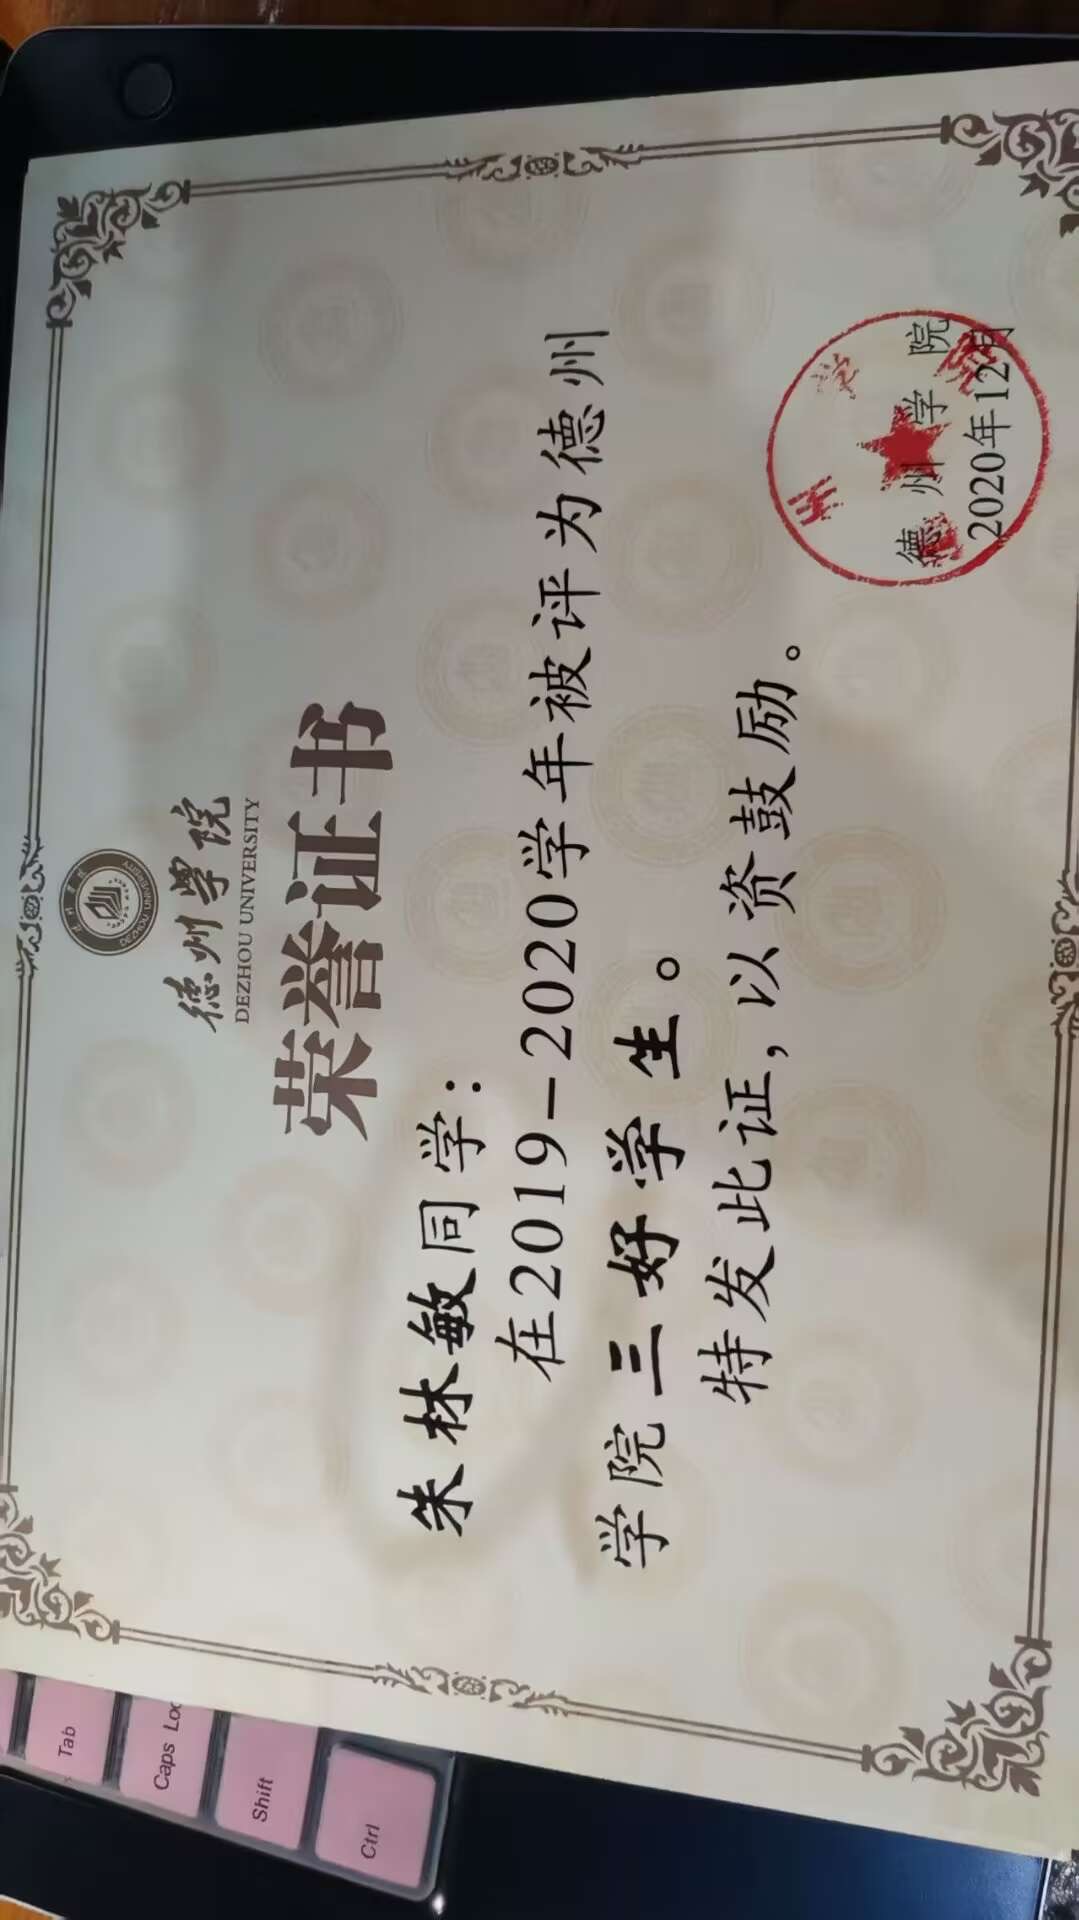 德州学院
DEZHOU UNIVERSITY
荣誉证书
朱林敏同学：
在2019-2020学年被评为德州
学院三好学生。
特发此证，以资鼓励。
德州学院
2020年12月
Tab
Caps Loc
Shift
Ctrl